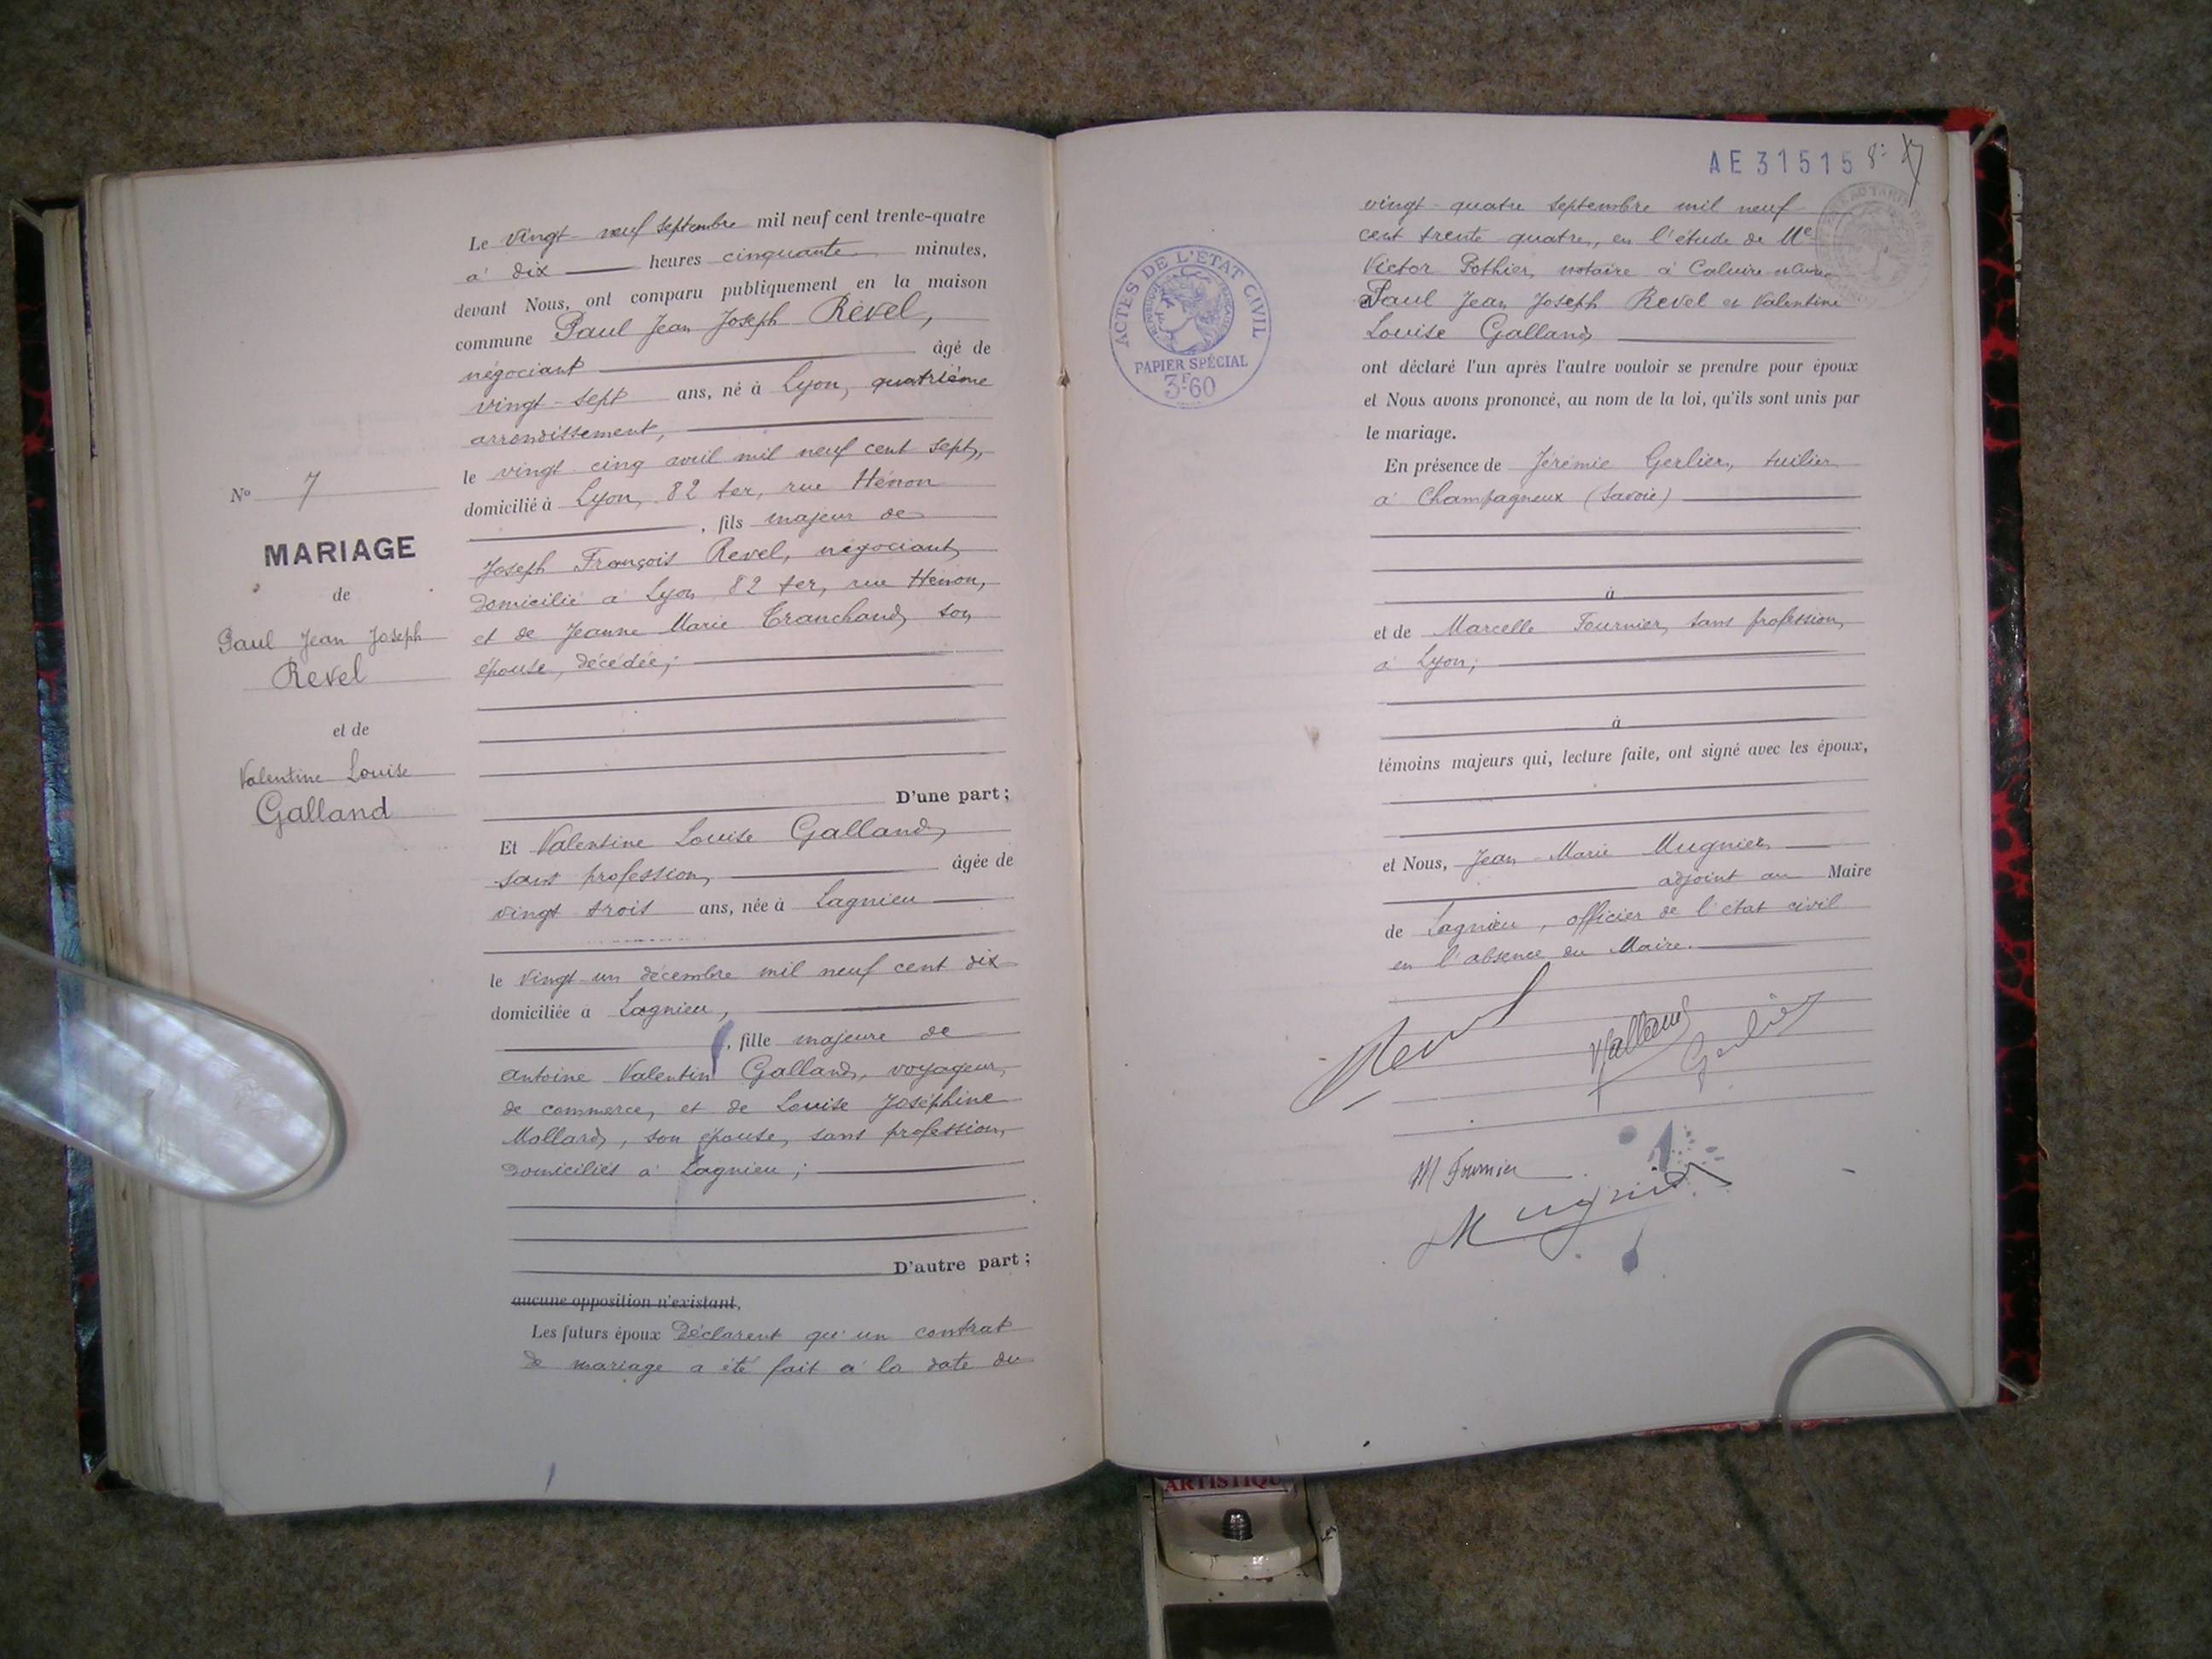 N° 7
MARIAGE
de
Paul Jean Joseph
Revel
et de
Valentine Louise
Galland
Le vingt-neuf septembre mil neuf cent trente-quatre
à dix heures cinquante minutes,
devant Nous, ont comparu publiquement en la maison
commune Paul Jean Joseph Revel,
négociant âgé de
vingt-sept ans, né à Lyon, quatrième
arrondissement,
le vingt-cinq avril mil neuf cent sept,
domicilié à Lyon, 82 ter, rue Hénon
, fils majeur de
Joseph François Revel, négociant,
domicilié à Lyon 82 ter, rue Hénon,
et de Jeanne Marie Tranchand, son
épouse, décédée;
D'une part;
Et Valentine Louise Galland,
sans profession, âgée de
vingt trois ans, née à Lagnieu
le vingt-un décembre mil neuf cent dix
domiciliée à Lagnieu,
, fille majeure de
Antoine Valentin Galland, voyageur
de commerce, et de Louise Joséphine
Mollard, son épouse, sans profession,
domiciliés à Lagnieu;
D'autre part;
aucune opposition n'existant,
Les futurs époux déclarent qu'un contrat
de mariage a été fait à la date du
AE 31515
ACTES DE L'ÉTAT CIVIL
PAPIER SPÉCIAL
3F60
vingt-quatre septembre mil neuf
cent trente quatre, en l'étude de Me
Victor Pothier, notaire à Caluire
Paul Jean Joseph Revel et Valentine
Louise Galland
ont déclaré l'un après l'autre vouloir se prendre pour époux
et Nous avons prononcé, au nom de la loi, qu'ils sont unis par
le mariage.
En présence de Jérémie Gerlier, tuilier
à Champagneux (Savoie)
à
et de Marcelle Fournier, sans profession,
à Lyon;
à
témoins majeurs qui, lecture faite, ont signé avec les époux,
et Nous, Jean-Marie Mugnier
adjoint au Maire
de Lagnieu, officier de l'état civil
en l'absence du Maire.
Revel
VGalland
Gerlier
M Fournier
Mugnier
ARTISTIQU